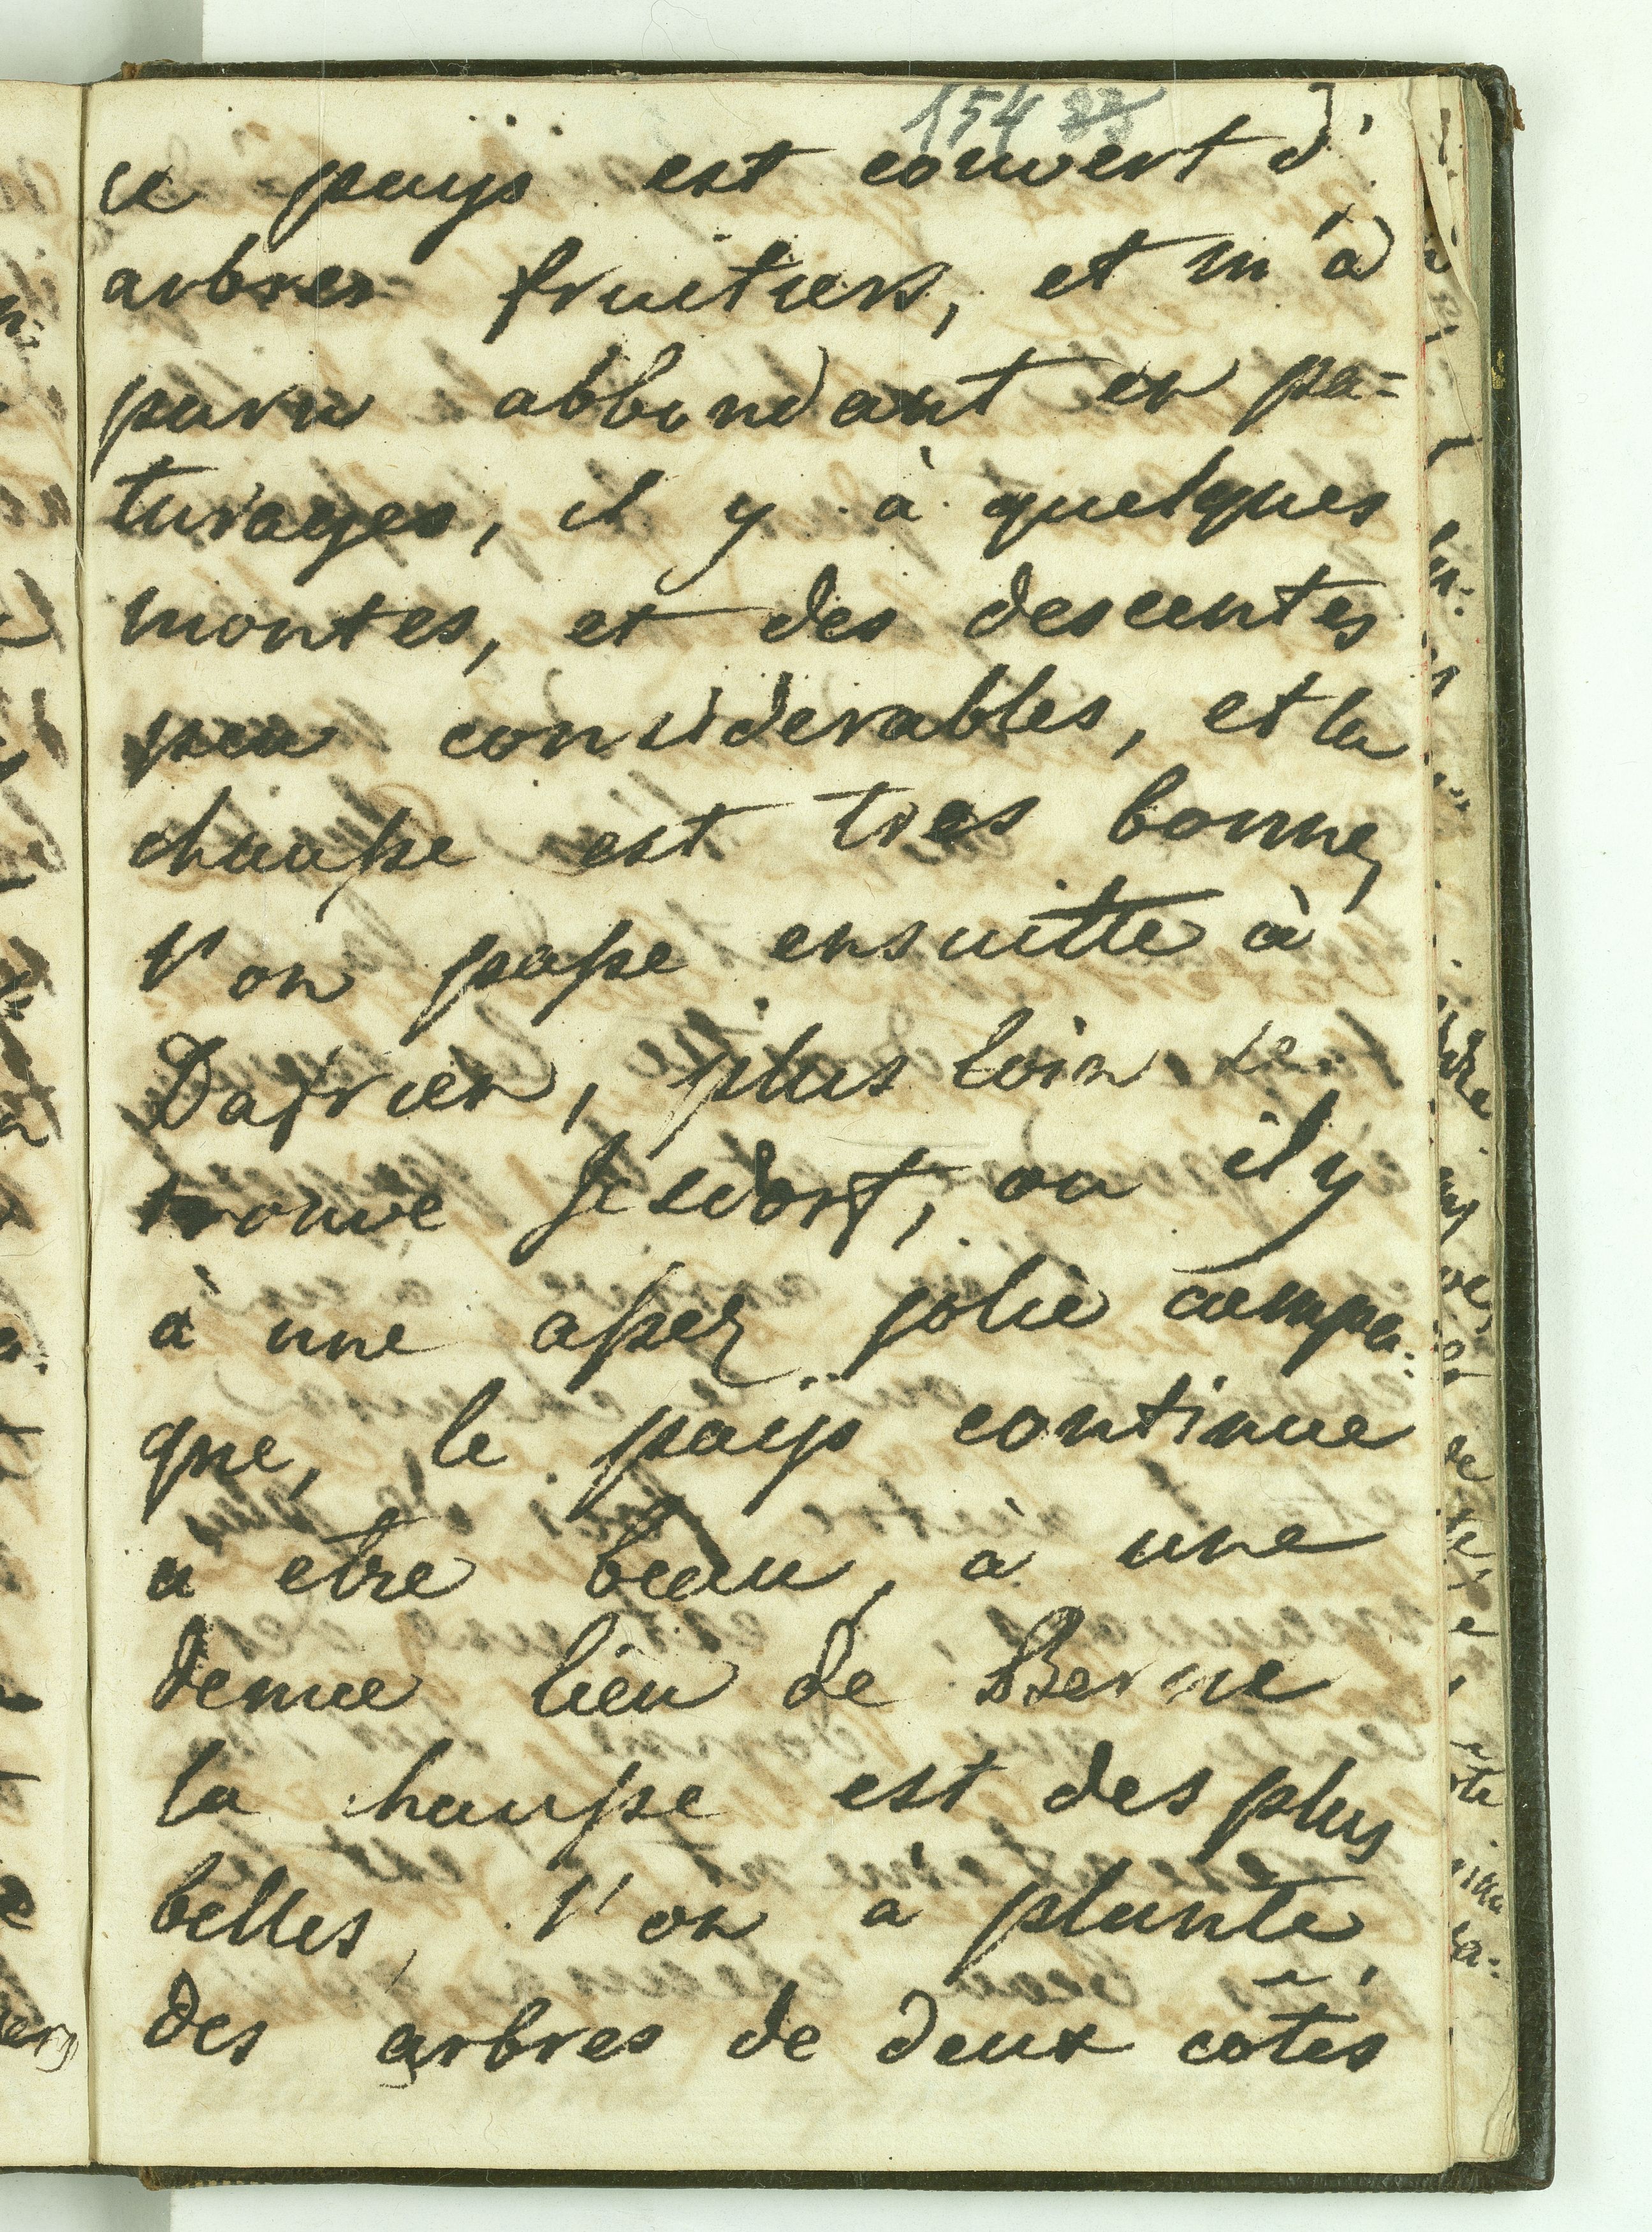 154 33
le pays est couvert d'
arbres fruitiers, et m'à
paru abbondant en pa=
turages, il y à quelques
montes, et des descentes
peu considerables, et la
chausse est tres bonne,
l'on passe ensuitte à
plus loin se
trouve Jesdorf, ou il y
à une assez jolie campa:
gne, le pays continue
à etre beau, à une
demie lieu de Berne
la chausse est des plus
belles, l'on à planté
des arbres de deux cotés